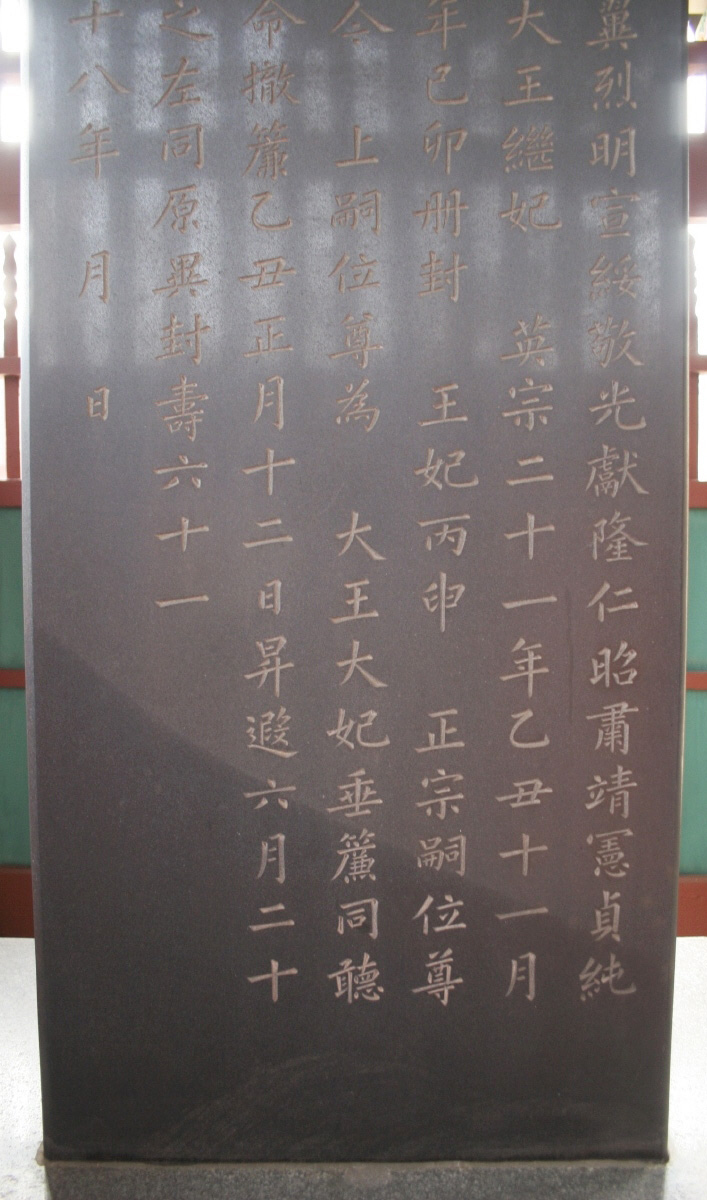 翼烈明宣綏敬光獻隆仁昭肅靖憲貞純
大王繼妃 英宗二十一年乙丑十一月
年己卯册封 王妃丙申 正宗嗣位尊
今 上嗣位尊為 大王大妃垂簾同聽
命撤簾乙丑正月十二日昇遐六月二十
之左同原異封壽六十一
十八年 月 日